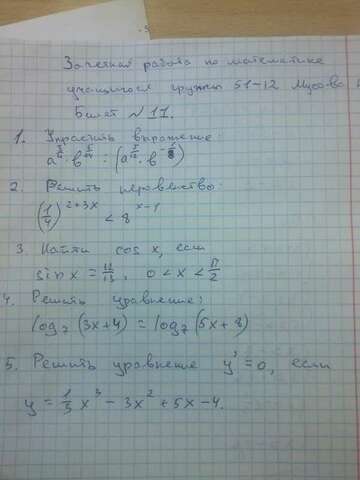 Зачетная работа по математике
учащегося группы 51-12
Билет № 11.
1. Упростить выражение:
2. Решить неравенство:
(1/4)^(2+3x) < 8^(x-1)
3. Найти cos x, если
sin x = 12/13, 0 < x < π/2
4. Решить уравнение:
log₇(3x+4) = log₇(5x+8)
5. Решить уравнение y' = 0, если
y = 1/3 x³ - 3x² + 5x - 4.